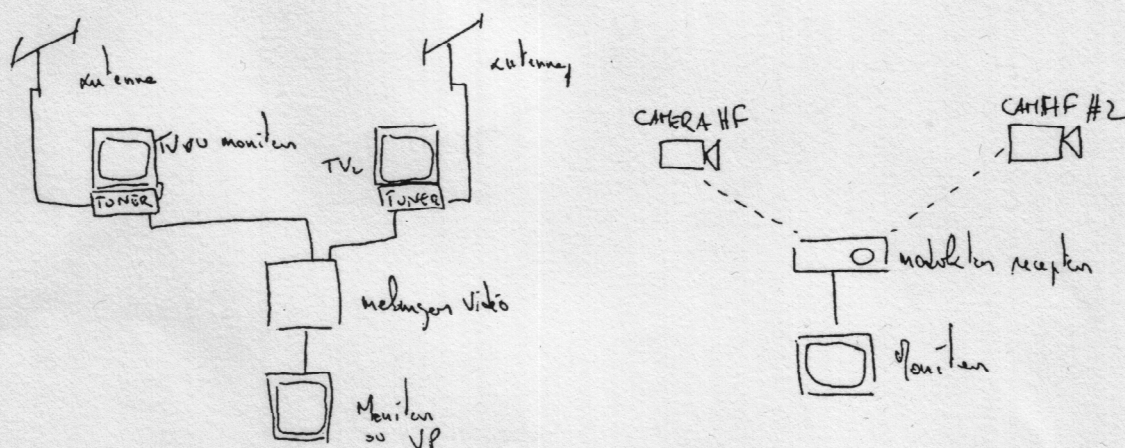 antenne
antenne
TV ou moniteur
TUNER
TV2
TUNER
melangeur vidéo
Moniteur
ou VP
CAMERA HF
CAM HF #2
modulateur recepteur
Moniteur